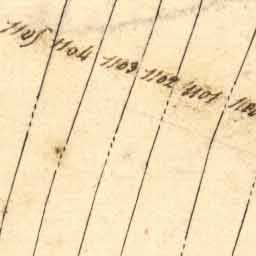 1105 1104 1103 1102 1101 1100